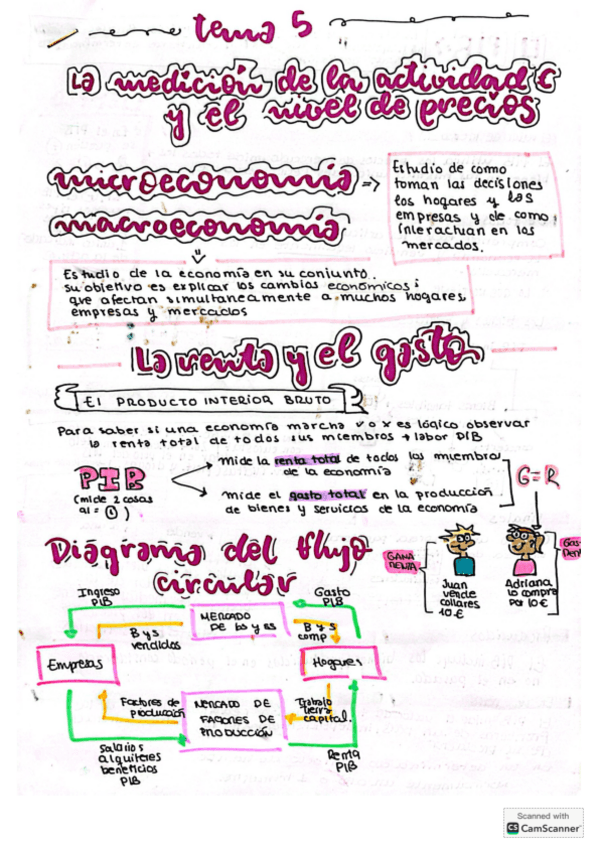 tema 5
La medición de la actividad €
y el nivel de precios
microeconomía =>
Estudio de como
toman las decisiones
los hogares y las
empresas y de como
interactuan en los
mercados.
macroeconomía
Estudio de la economía en su conjunto.
su objetivo es explicar los cambios económicos
que afectan simultaneamente a muchos hogares,
empresas y mercados
La renta y el gasto
El PRODUCTO INTERIOR BRUTO
Para saber si una economía marcha v o x es lógico observar
la renta total de todos sus miembros → labor PIB
PIB
(mide 2 cosas
al = ①)
Mide la renta total de todos los miembros
de la economía
mide el gasto total en la producción
de bienes y servicios de la economía
G=R
GANA
RENTA
Juan
vende
collares
10€
Adriana
lo compra
por 10€
Gas-
Diagrama del flujo
circular
Ingreso
PIB
Gasto
PIB
MERCADO
DE bs y ss
B y s
vendidos
B y s
comp
Empresas
Hogares
Factores de
producción
MERCADO DE
FACTORES DE
PRODUCCIÓN
Trabajo
tierra
capital.
Salarios
alquileres
beneficios
PIB
Renta
PIB
Scanned with
CS CamScanner